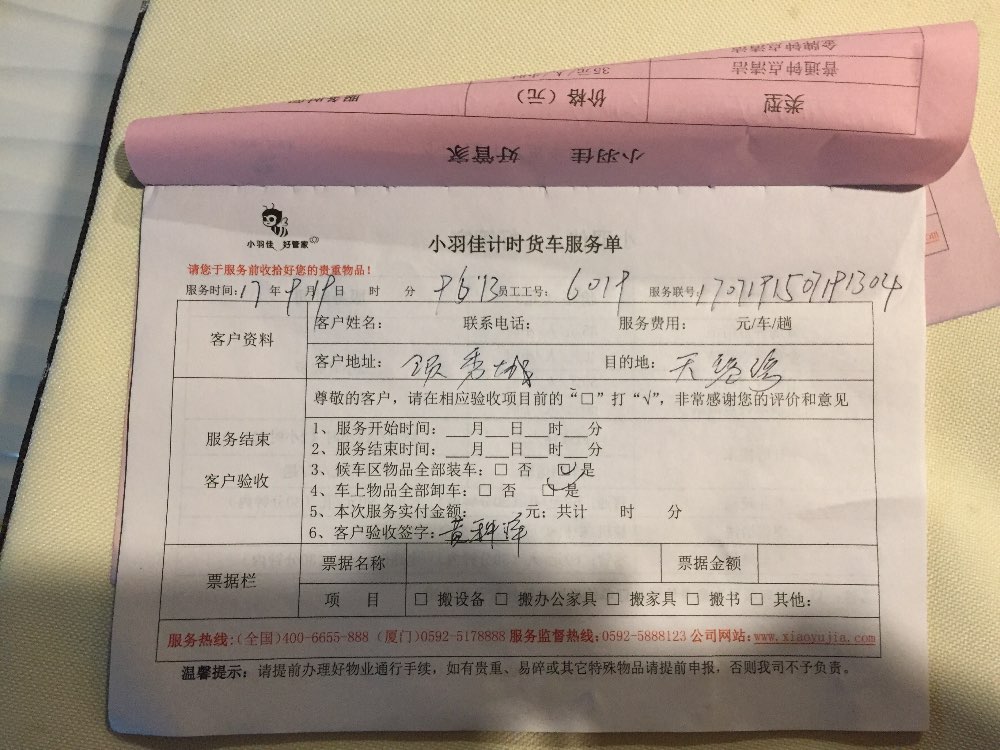 金牌钟点清洁
普通钟点清洁 35元/人
类型 价格（元）
小羽佳 好管家
小羽佳 好管家
小羽佳计时货车服务单
请您于服务前收拾好您的贵重物品！
服务时间：17年9月19日 时 分 员工工号：6019 服务联号：
客户资料
客户姓名： 联系电话： 服务费用： 元/车/趟
客户地址：领秀城 目的地：
服务结束
客户验收
尊敬的客户，请在相应验收项目前的“□”打“√”，非常感谢您的评价和意见
1、服务开始时间：___月___日___时___分
2、服务结束时间：___月___日___时___分
3、候车区物品全部装车：□ 否 ☑ 是
4、车上物品全部卸车：□ 否 ☑ 是
5、本次服务实付金额： 元；共计 时 分
6、客户验收签字：
票据栏
票据名称 票据金额
项 目 □ 搬设备 □ 搬办公家具 □ 搬家具 □ 搬书 □ 其他：
服务热线：(全国)400-6655-888 (厦门)0592-5178888 服务监督热线：0592-5888123 公司网站：www.xiaoyujia.com
温馨提示：请提前办理好物业通行手续，如有贵重、易碎或其它特殊物品请提前申报，否则我司不予负责。